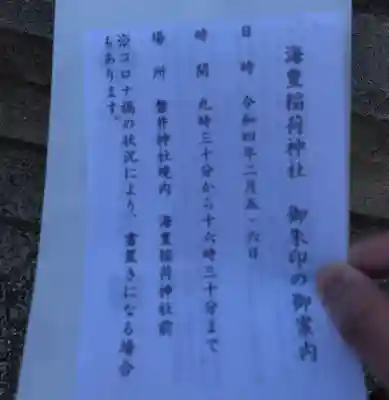 海豊稲荷神社 御朱印の御案内
日時 令和四年二月五・六日
時間 九時三十分から十六時三十分まで
場所 磐井神社境内 海豊稲荷神社前
※コロナ禍の状況により、書置きになる場合
もあります。